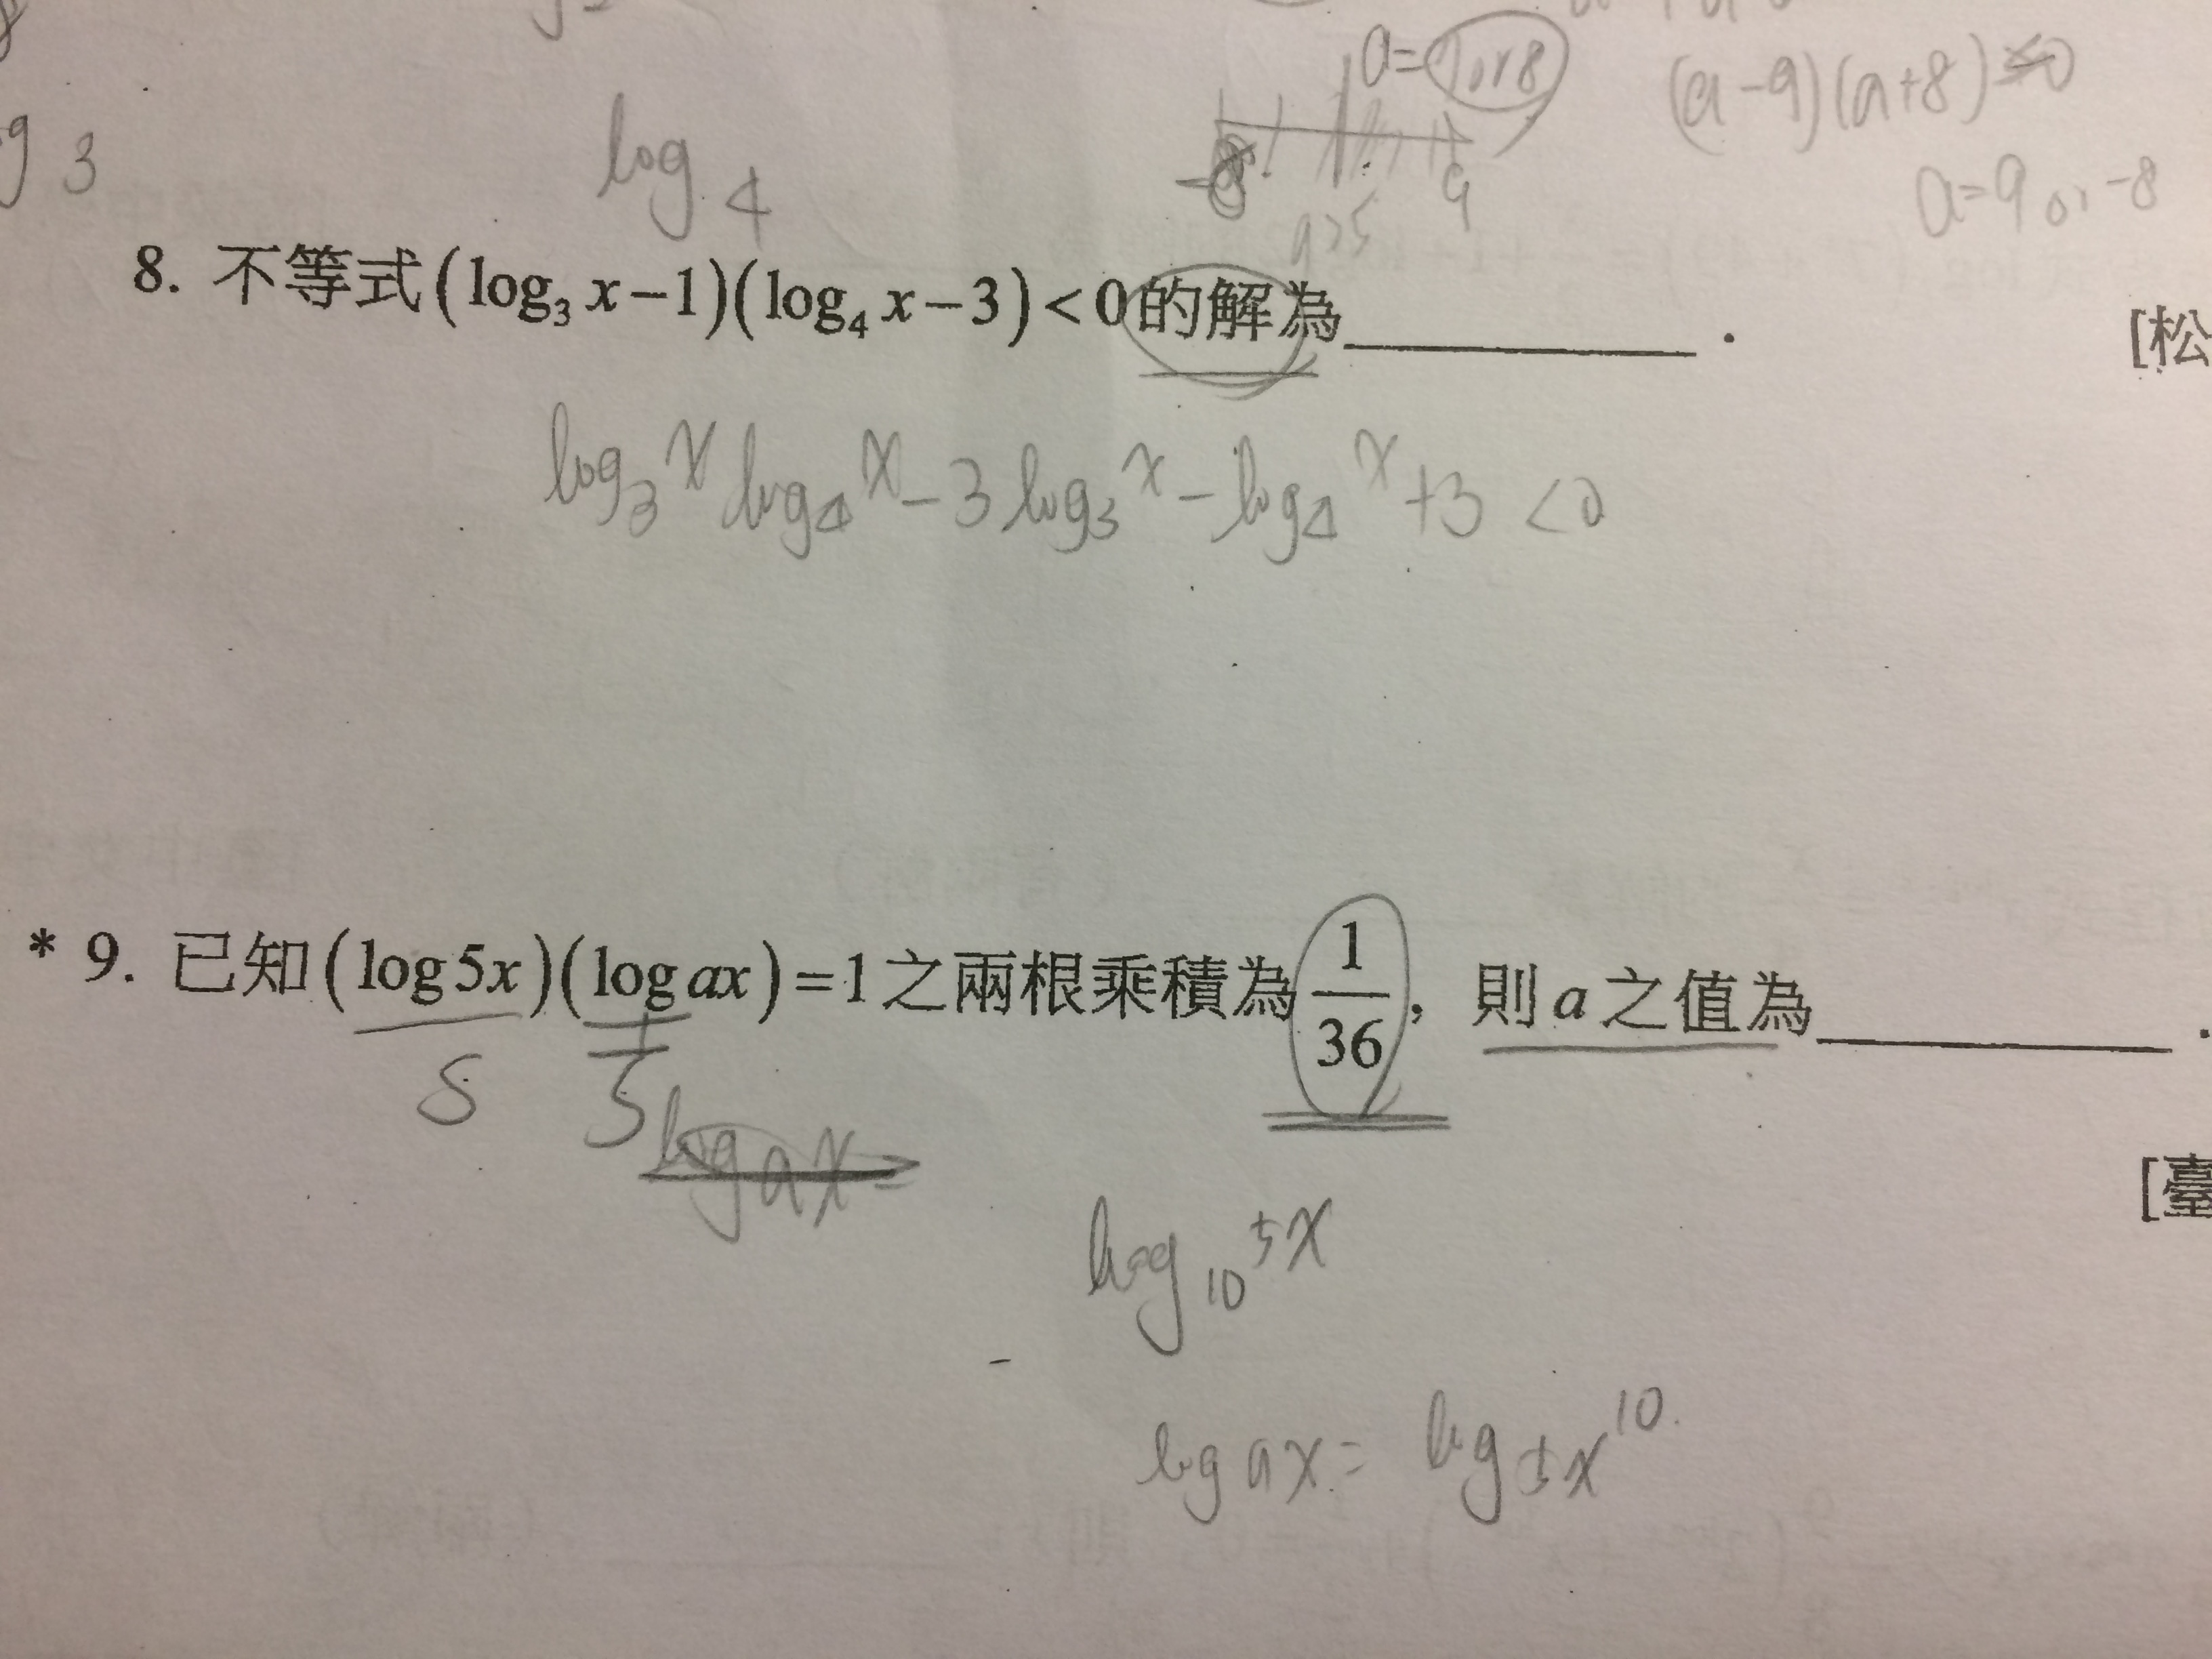 a= 7 or 8
(a-9)(a+8)≤0
g 3
log 4
-8
9
a>5
a=9 or -8
8. 不等式(log₃ x-1)(log₄ x-3)<0的解為________.
[松
log₃ x log₄ x - 3 log₃ x - log₄ x + 3 < 0
* 9. 已知(log5x)(logax)=1之兩根乘積為1/36, 則a之值為________.
5
log ax =
[臺
log 10 5x
log ax = log 5x 10